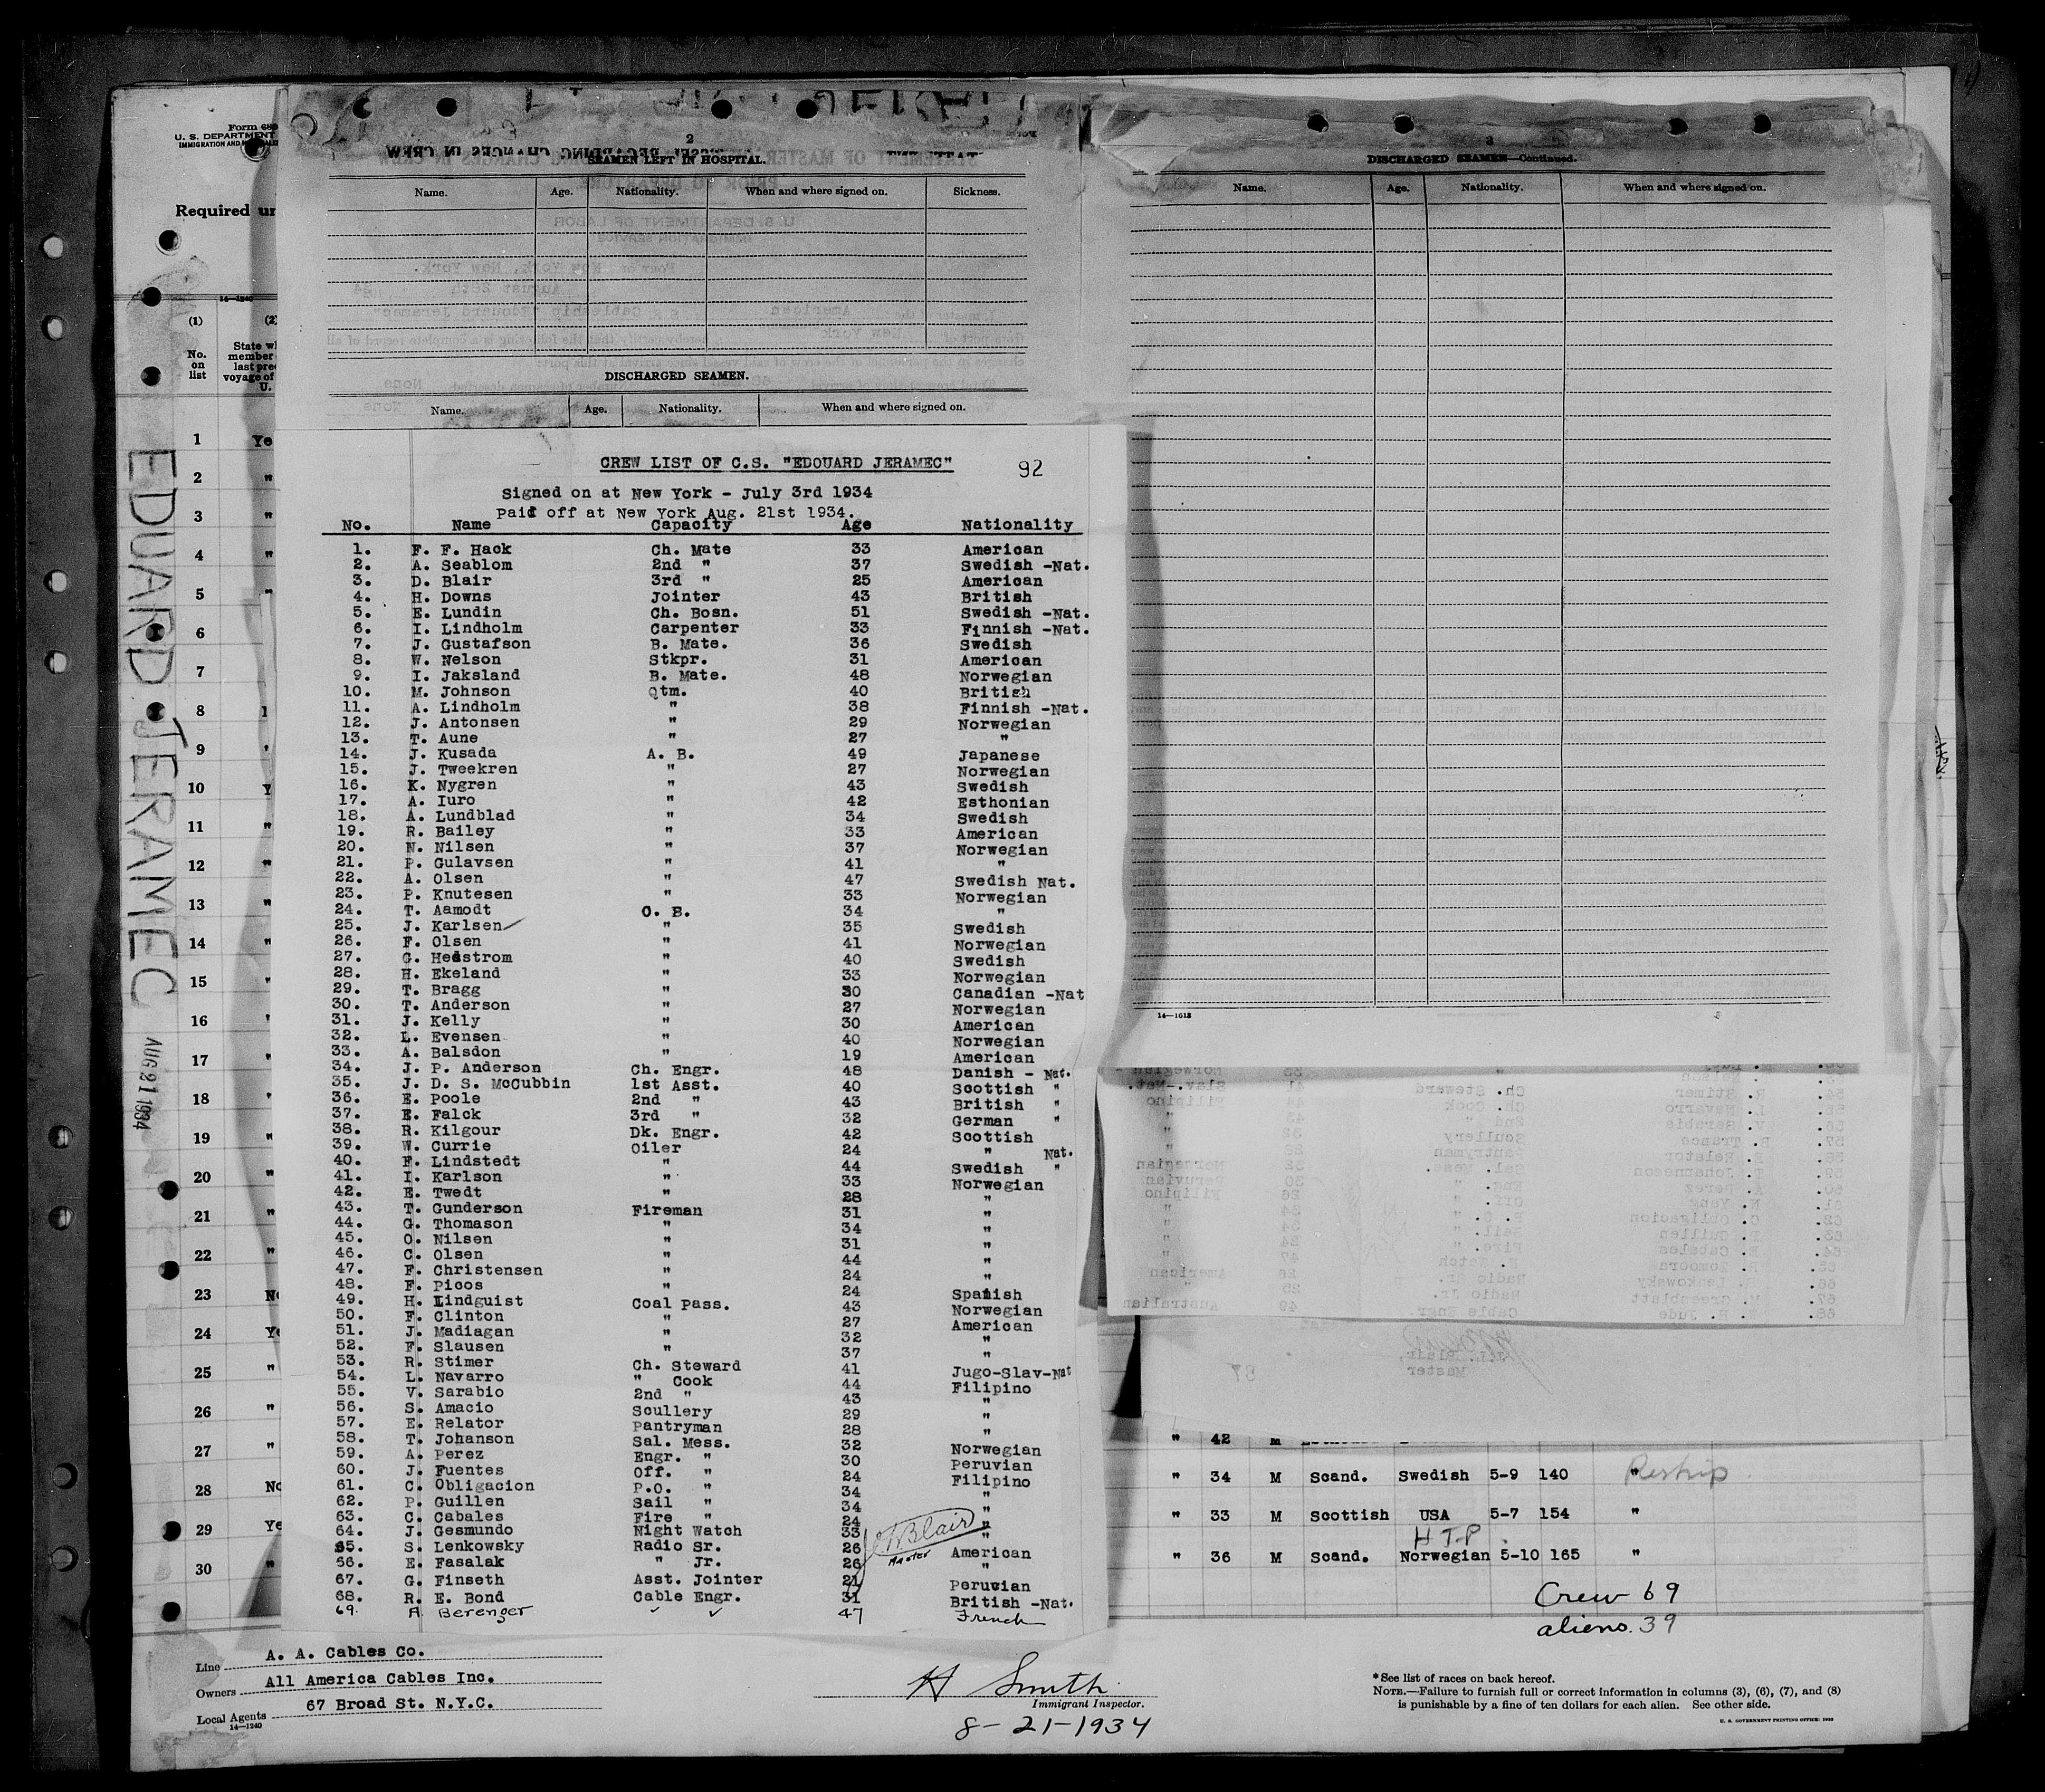 Form 680
U. S. DEPARTMENT
IMMIGRATION AND
Required un
14—1240
(1)
No.
on
list
State wh
member
last pre
voyage of
U.
1 Ye
2 "
3 "
4 "
5 "
6
7
8
9
10 Y
11 "
12 "
13 "
14 "
15 "
16 "
17 "
18 "
19 "
20 "
21 "
22 "
23 No
24 Ye
25 "
26 "
27 "
28 No
29 Ye
30 "
EDUARD JERAMEC AUG 21 1934
2
SEAMEN LEFT IN HOSPITAL.
Name. Age. Nationality. When and where signed on. Sickness.
DISCHARGED SEAMEN.
Name. Age. Nationality. When and where signed on.
3
DISCHARGED SEAMEN—Continued.
Name. Age. Nationality. When and where signed on.
14—1613
CREW LIST OF C.S. "EDOUARD JERAMEC" 92
Signed on at New York - July 3rd 1934
Paid off at New York Aug. 21st 1934.
No. Name Capacity Age Nationality
1. F. F. Hack Ch. Mate 33 American
2. A. Seablom 2nd " 37 Swedish -Nat.
3. D. Blair 3rd " 25 American
4. H. Downs Jointer 43 British
5. E. Lundin Ch. Bosn. 51 Swedish -Nat.
6. I. Lindholm Carpenter 33 Finnish -Nat.
7. J. Gustafson B. Mate. 36 Swedish
8. W. Nelson Stkpr. 31 American
9. I. Jaksland B. Mate. 48 Norwegian
10. M. Johnson Qtm. 40 British
11. A. Lindholm " 38 Finnish -Nat.
12. J. Antonsen " 29 Norwegian
13. T. Aune " 27 "
14. J. Kusada A. B. 49 Japanese
15. J. Tweekren " 27 Norwegian
16. K. Nygren " 43 Swedish
17. A. Iuro " 42 Esthonian
18. A. Lundblad " 34 Swedish
19. R. Bailey " 33 American
20. N. Nilsen " 37 Norwegian
21. P. Gulavsen " 41 "
22. A. Olsen " 47 Swedish Nat.
23. P. Knutesen " 33 Norwegian
24. T. Aamodt O. B. 34 "
25. J. Karlsen " 35 Swedish
26. F. Olsen " 41 Norwegian
27. G. Hedstrom " 40 Swedish
28. H. Ekeland " 33 Norwegian
29. T. Bragg " 30 Canadian -Nat
30. T. Anderson " 27 Norwegian
31. J. Kelly " 30 American
32. L. Evensen " 40 Norwegian
33. A. Balsdon " 19 American
34. J. P. Anderson Ch. Engr. 48 Danish - Nat.
35. J. D. S. McCubbin 1st Asst. 40 Scottish "
36. E. Poole 2nd " 43 British "
37. E. Falck 3rd " 32 German "
38. R. Kilgour Dk. Engr. 42 Scottish
39. W. Currie Oiler 24 " Nat.
40. F. Lindstedt " 44 Swedish "
41. I. Karlson " 33 Norwegian
42. E. Twedt " 28 "
43. T. Gunderson Fireman 31 "
44. G. Thomason " 34 "
45. O. Nilsen " 31 "
46. C. Olsen " 44 "
47. F. Christensen " 24 "
48. F. Picos " 24 Spanish
49. H. Lindguist Coal Pass. 43 Norwegian
50. F. Clinton " 27 American
51. J. Madiagan " 32 "
52. F. Slausen " 37 "
53. R. Stimer Ch. Steward 41 Jugo-Slav-Nat
54. L. Navarro " Cook 44 Filipino
55. V. Sarabio 2nd " 43 "
56. S. Amacio Scullery 29 "
57. E. Relator Pantryman 28 "
58. T. Johanson Sal. Mess. 32 Norwegian
59. A. Perez Engr. " 30 Peruvian
60. J. Fuentes Off. " 24 Filipino
61. C. Obligacion P.O. " 34 "
62. P. Guillen Sail " 34 "
63. C. Cabales Fire " 24 "
64. J. Gesmundo Night Watch 33 "
65. S. Lenkowsky Radio Sr. 26 American
66. E. Fasalak " Jr. 26 "
67. G. Finseth Asst. Jointer 21 Peruvian
68. R. E. Bond Cable Engr. 31 British -Nat.
69. A. Berenger ✓ ✓ 47 French
Blair
Master
" 42 M
" 34 M Scand. Swedish 5-9 140 " Reship
" 33 M Scottish USA 5-7 154 "
H T P
" 36 M Scand. Norwegian 5-10 165 "
Crew 69
aliens. 39
Line A. A. Cables Co.
Owners All America Cables Inc.
Local Agents 67 Broad St. N.Y.C.
14—1240
H Smith
Immigrant Inspector.
8-21-1934
*See list of races on back hereof.
NOTE.—Failure to furnish full or correct information in columns (3), (6), (7), and (8)
is punishable by a fine of ten dollars for each alien. See other side.
U. S. GOVERNMENT PRINTING OFFICE: 1932